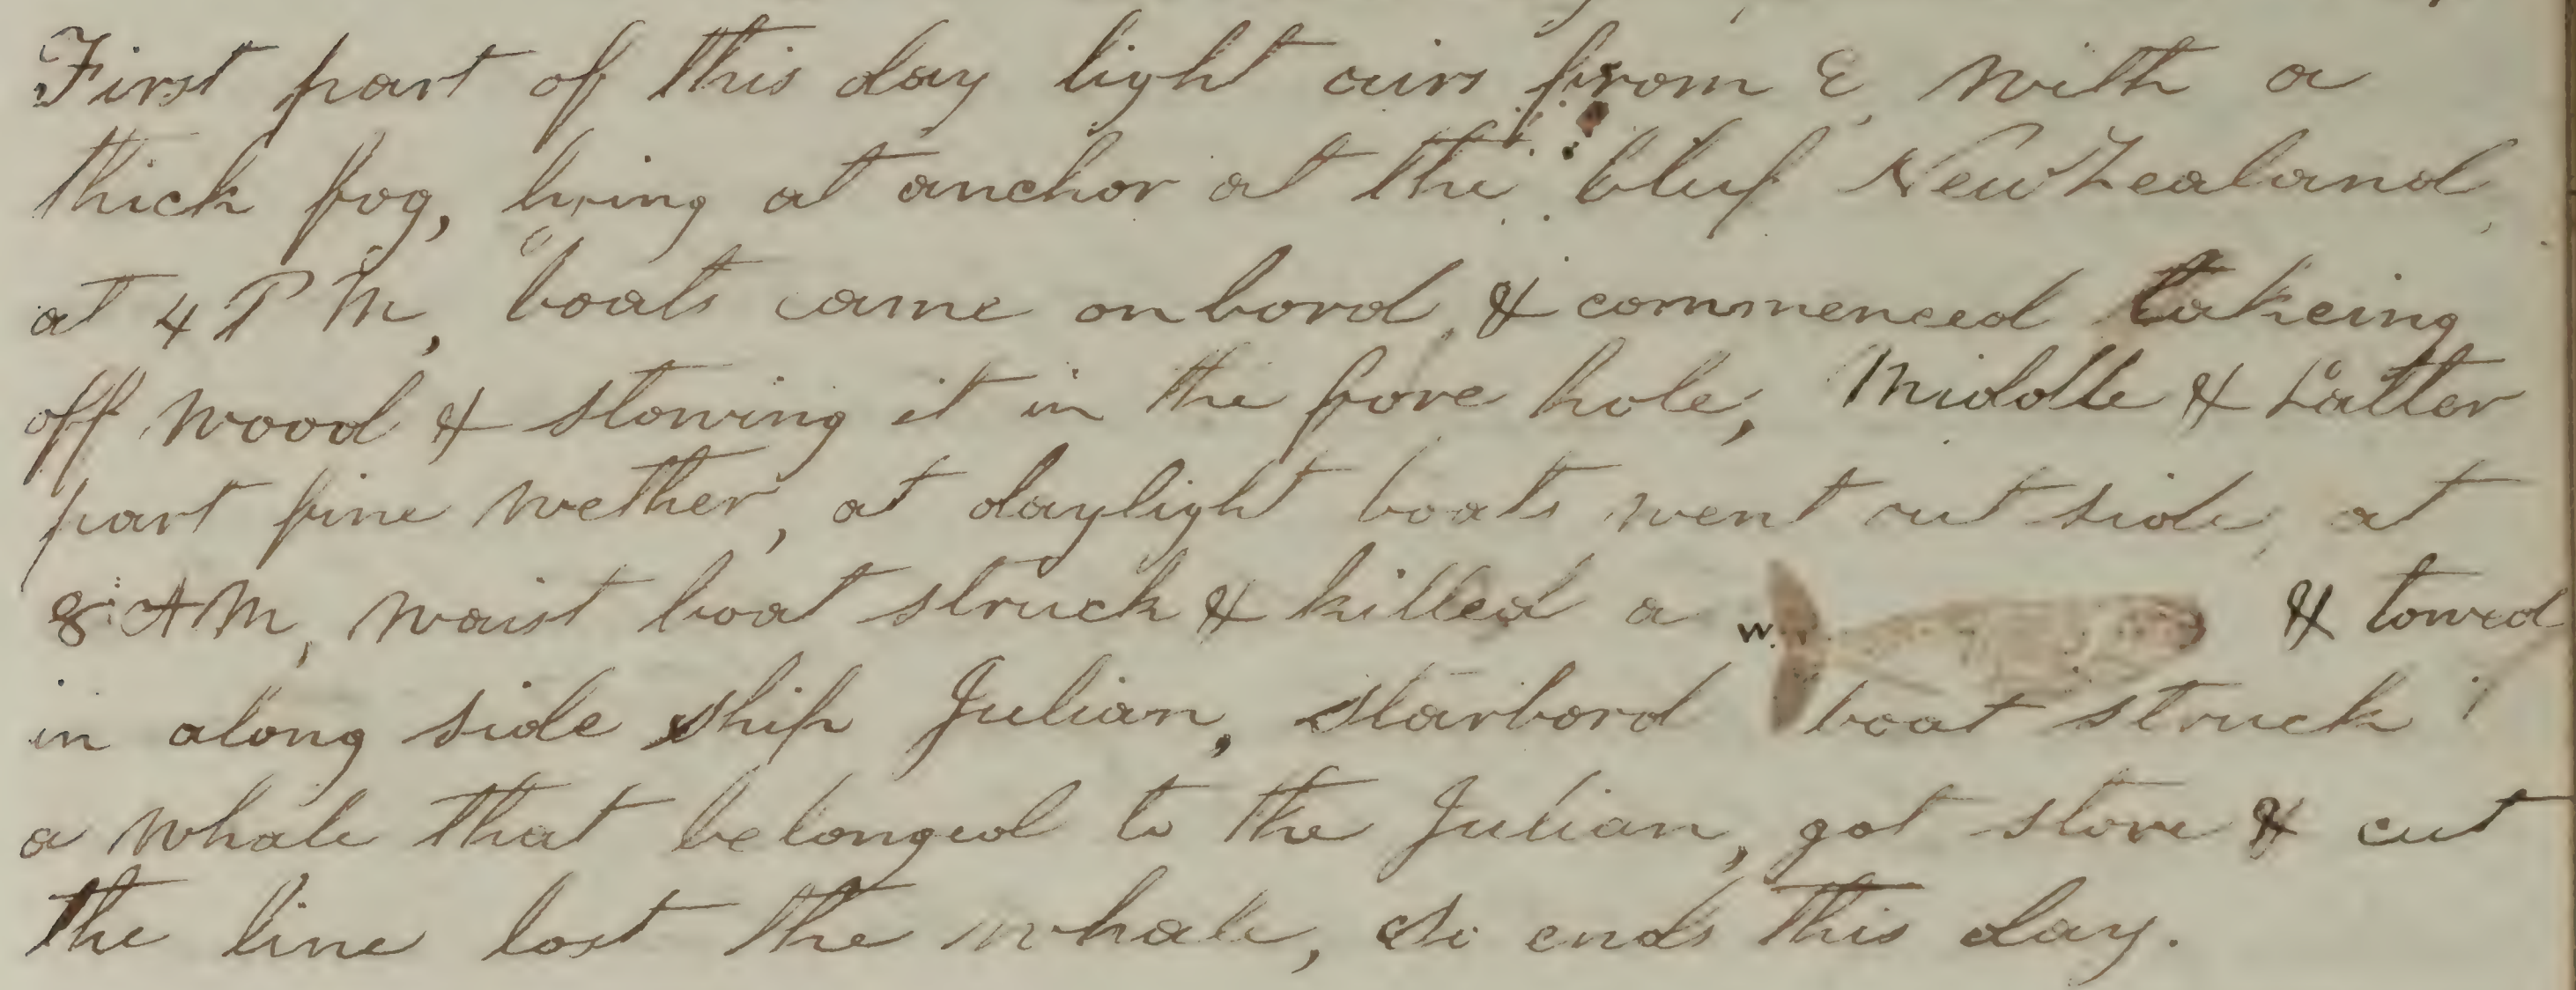 First part of this day light airs from E, with a
thick fog, lying at anchor at the bluf New Zealand,
at 4 P M, boats came onbord, & commenced takeing
off wood & stowing it in the fore hole, Middle & Latter
part fine wether, at daylight boats went out side, at
8 AM, waist boat struck & killed a W. & towed
in along side ship Julian, starbord boat struck
a whale that belonged to the Julian, got stove & cut
the line lost the whale, So ends this day.